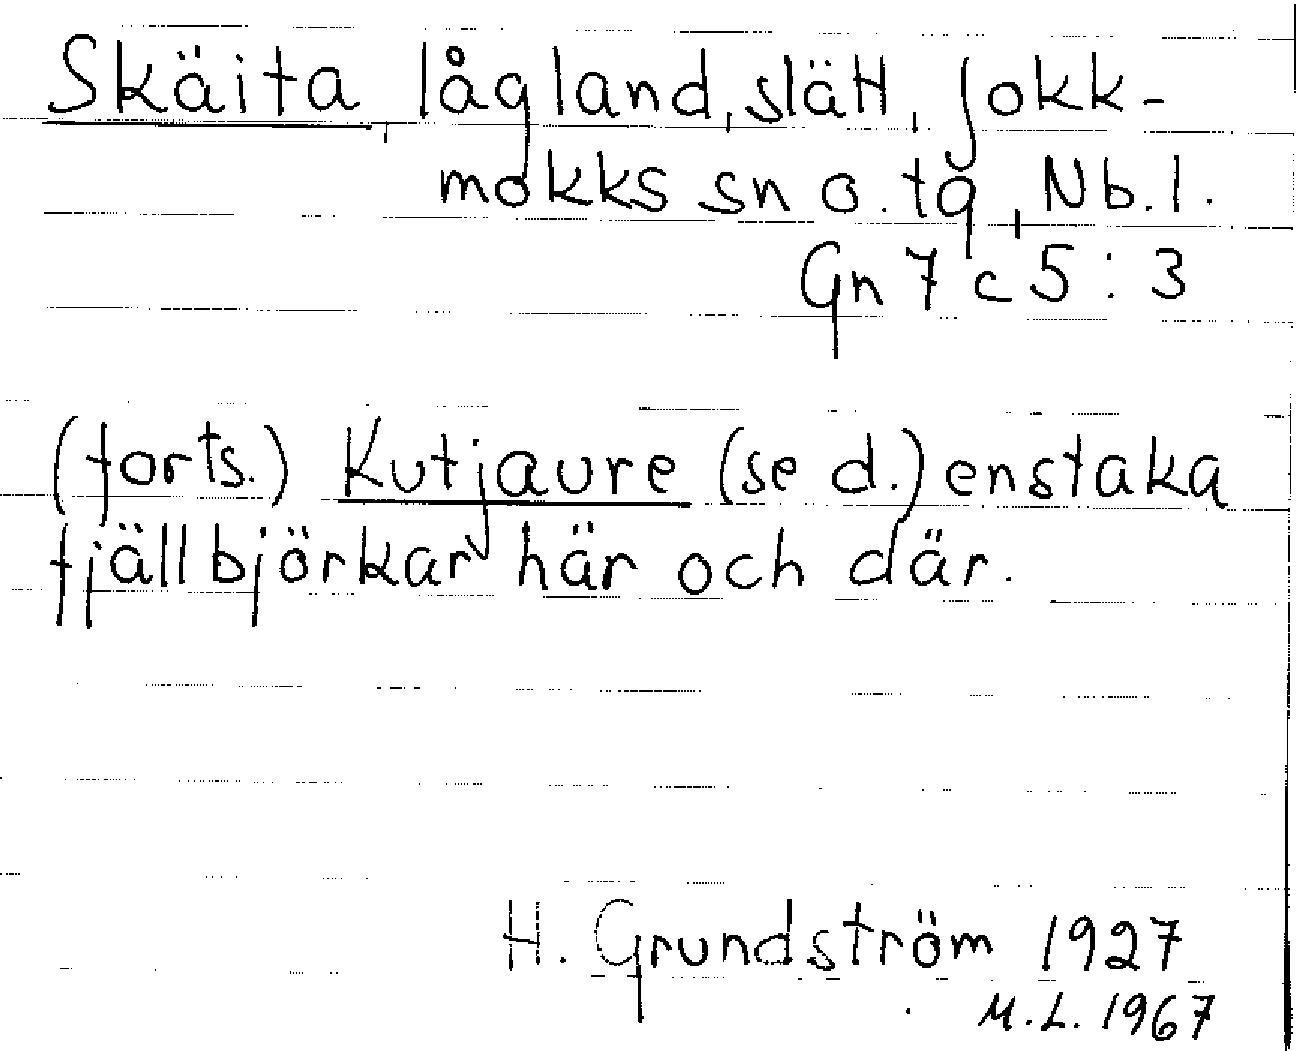 Skäita, lågland, slätt, Jokk-
mokks sn o. tg, Nb. l.
Gn 7 c 5 : 3
(forts.) Kutjaure (se d.) enstaka
fjällbjörkar här och där.
H. Grundström 1927
M.L. 1967